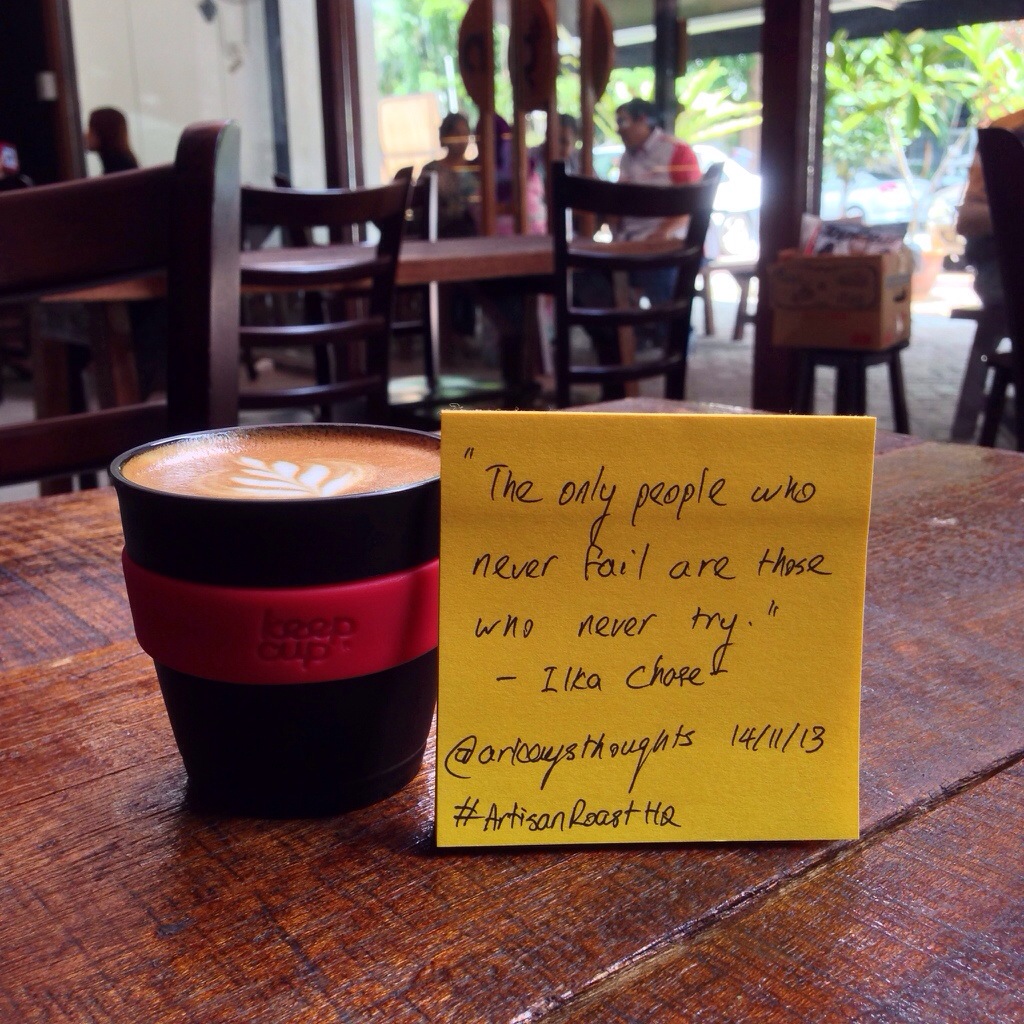 keep
cup
"The only people who
never fail are those
who never try."
- Ilka Chase
@aricoysthoughts 14/11/13
#ArtisanRoastHQ